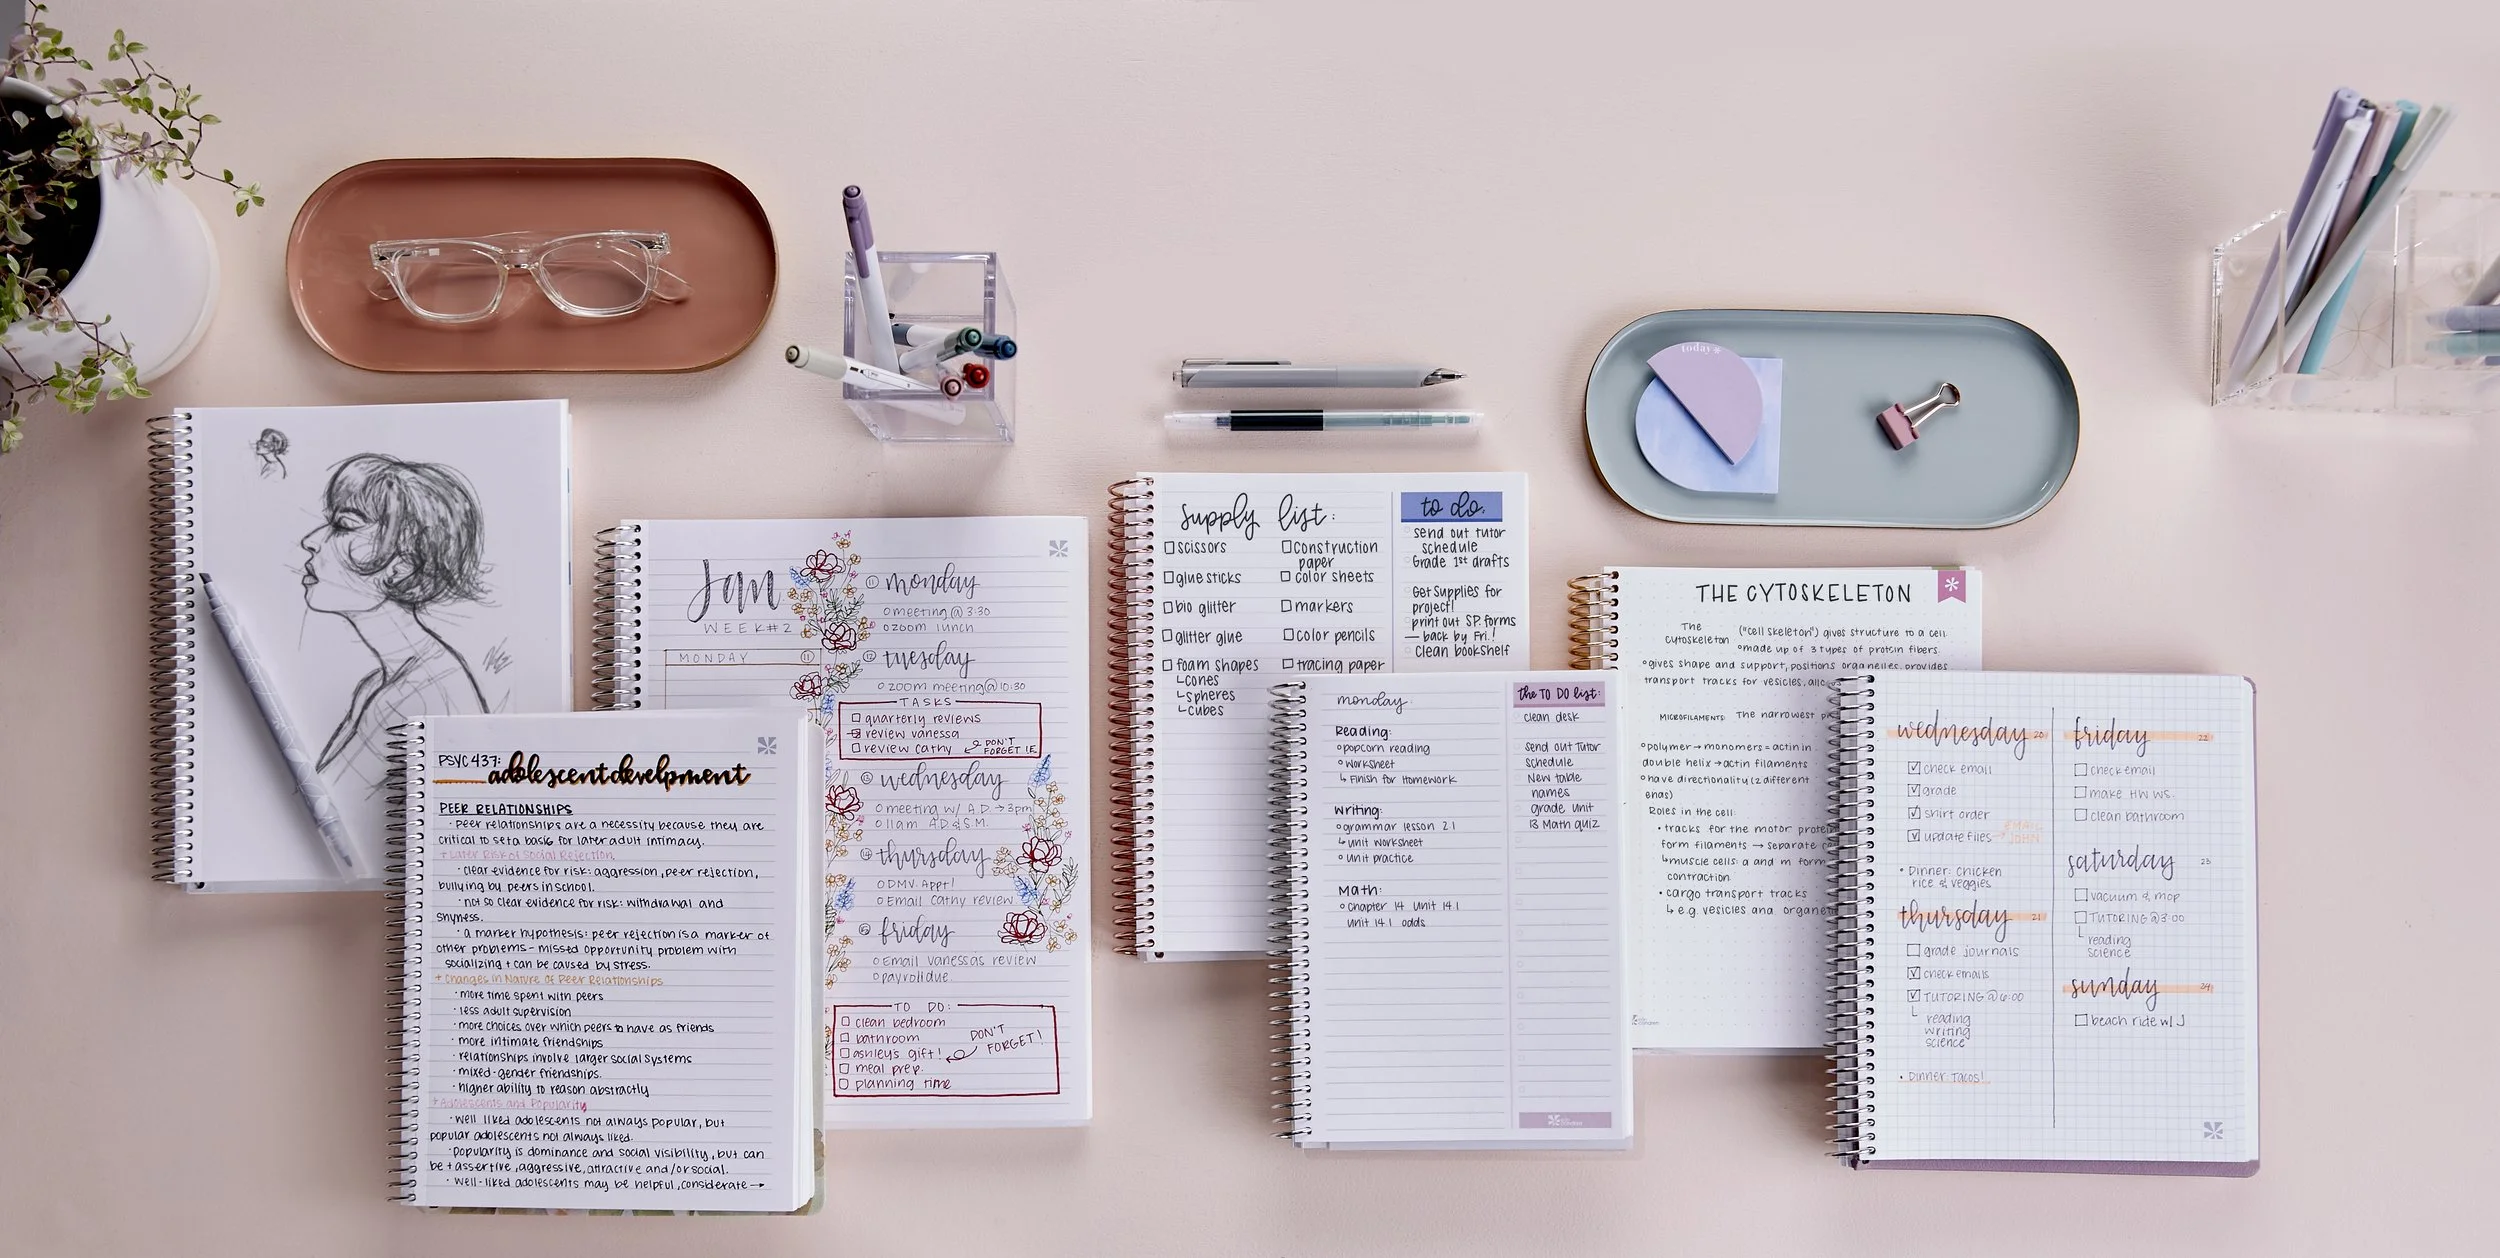 today
PSYC 437:
adolescent develpment
PEER RELATIONSHIPS
· Peer relationships are a necessity because they are
critical to set a basis for later adult intimacy.
+ Later Risk of Social Rejection
· clear evidence for risk: aggression, peer rejection,
bullying by peers in school.
· not so clear evidence for risk: withdrawal and
shyness.
· a marker hypothesis: peer rejection is a marker of
other problems - missed opportunity problem with
socializing + can be caused by stress.
+ Changes in Nature of Peer Relationships
· more time spent with peers
· less adult supervision
· more choices over which peers to have as friends
· more intimate friendships
· relationships involve larger social systems
· mixed-gender friendships.
· higher ability to reason abstractly
+ Adolescents and Popularity
· well liked adolescents not always popular, but
popular adolescents not always liked.
· popularity is dominance and social visibility, but can
be + assertive, aggressive, attractive and/or social.
· well-liked adolescents may be helpful, considerate →
Jan
WEEK #2
MONDAY 11
11 monday
o meeting @ 3:30
o zoom lunch
12 tuesday
o zoom meeting @ 10:30
TASKS
□ quarterly reviews
□ review vanessa
□ review cathy
DON'T
FORGET I.E.
13 wednesday
o meeting w/ A.D. → 3pm
o 11am A.D & S.M.
14 thursday
o DMV Appt!
o Email Cathy review
15 friday
o Email vanessas review
o payroll due
TO DO:
□ clean bedroom
□ bathroom
□ ashley's gift!
□ meal prep.
□ planning time
DON'T
FORGET!
supply list:
□ scissors
□ glue sticks
□ bio glitter
□ glitter glue
□ foam shapes
↳ cones
↳ spheres
↳ cubes
□ construction
paper
□ color sheets
□ markers
□ color pencils
□ tracing paper
to do:
send out tutor
schedule
Grade 1st drafts
Get supplies for
project!
print out SP. forms
— back by Fri.!
clean bookshelf
monday
Reading:
o popcorn reading
o worksheet
↳ Finish for Homework
Writing:
o grammar lesson 2.1
↳ unit worksheet
o unit practice
Math:
o Chapter 14 Unit 14.1
Unit 14.1 odds
the TO DO list:
clean desk
send out Tutor
schedule
New table
names
grade unit
13 Math quiz
THE CYTOSKELETON
The
cytoskeleton ("cell skeleton") gives structure to a cell.
o made up of 3 types of protein fibers.
o gives shape and support, positions organelles, provides
transport tracks for vesicles,
MICROFILAMENTS: The narrowest
o polymer → monomers = actin in
double helix → actin filaments
o have directionality (2 different
ends)
Roles in the cell:
• tracks for the motor
form filaments → separate
↳ muscle cells: a and m form
contraction
• cargo transport tracks
↳ e.g. vesicles and
wednesday 20
☑ check email
☑ grade
☑ shirt order
☑ update files → EMAIL
JOHN
• Dinner: chicken
rice & veggies
thursday 21
□ grade journals
☑ check emails
☑ TUTORING @ 6:00
↳ reading
writing
science
• Dinner: Tacos!
friday 22
□ check email
□ make HW WS.
□ clean bathroom
saturday 23
□ vacuum & mop
□ TUTORING @ 3:00
↳ reading
science
sunday 24
□ beach ride w/ J